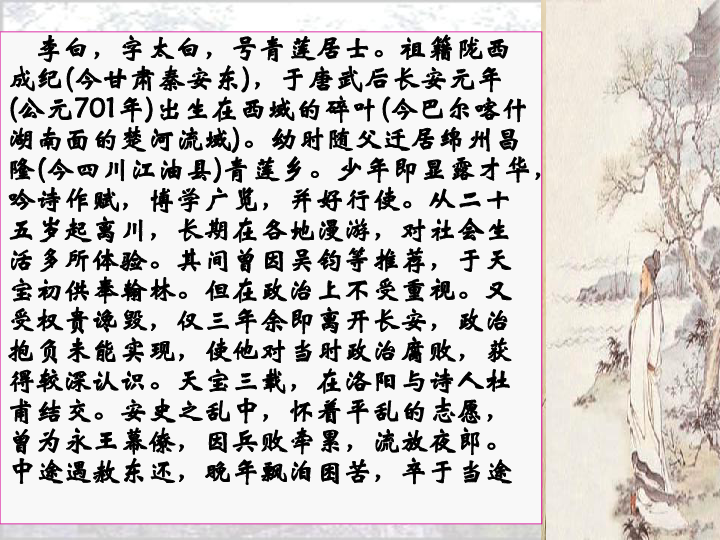 李白，字太白，号青莲居士。祖籍陇西
成纪(今甘肃秦安东)，于唐武后长安元年
(公元701年)出生在西域的碎叶(今巴尔喀什
湖南面的楚河流域)。幼时随父迁居绵州昌
隆(今四川江油县)青莲乡。少年即显露才华，
吟诗作赋，博学广览，并好行使。从二十
五岁起离川，长期在各地漫游，对社会生
活多所体验。其间曾因吴钧等推荐，于天
宝初供奉翰林。但在政治上不受重视。又
受权贵谗毁，仅三年余即离开长安，政治
抱负未能实现，使他对当时政治腐败，获
得较深认识。天宝三载，在洛阳与诗人杜
甫结交。安史之乱中，怀着平乱的志愿，
曾为永王幕僚，因兵败牵累，流放夜郎。
中途遇赦东还，晚年飘泊困苦，卒于当途